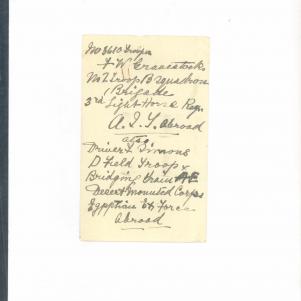 No 3610 Trooper
F W Gravestocks
No 2 Troop B Squadron
1 Brigade
3rd Light Horse Reg
A.I.F. abroad
also
Driver Simons
D Field Troop
Bridging Train AE
Desert Mounted Corps
Egyptian Ex Force
abroad